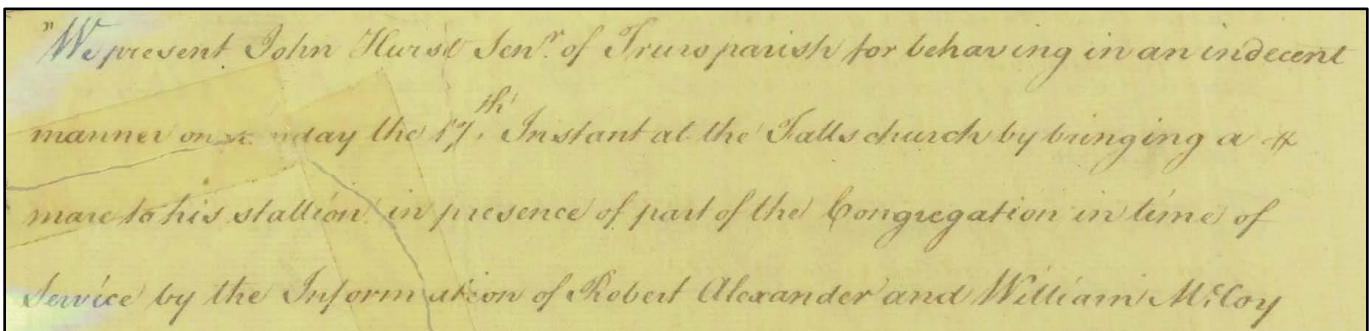 "We present John Hurst Senr. of Truro parish for behaving in an indecent
manner on day the 17th. Instant at the Falls church by bringing a
mare to his stallion in presence of part of the Congregation in time of
Service by the Information of Robert Alexander and William McCoy